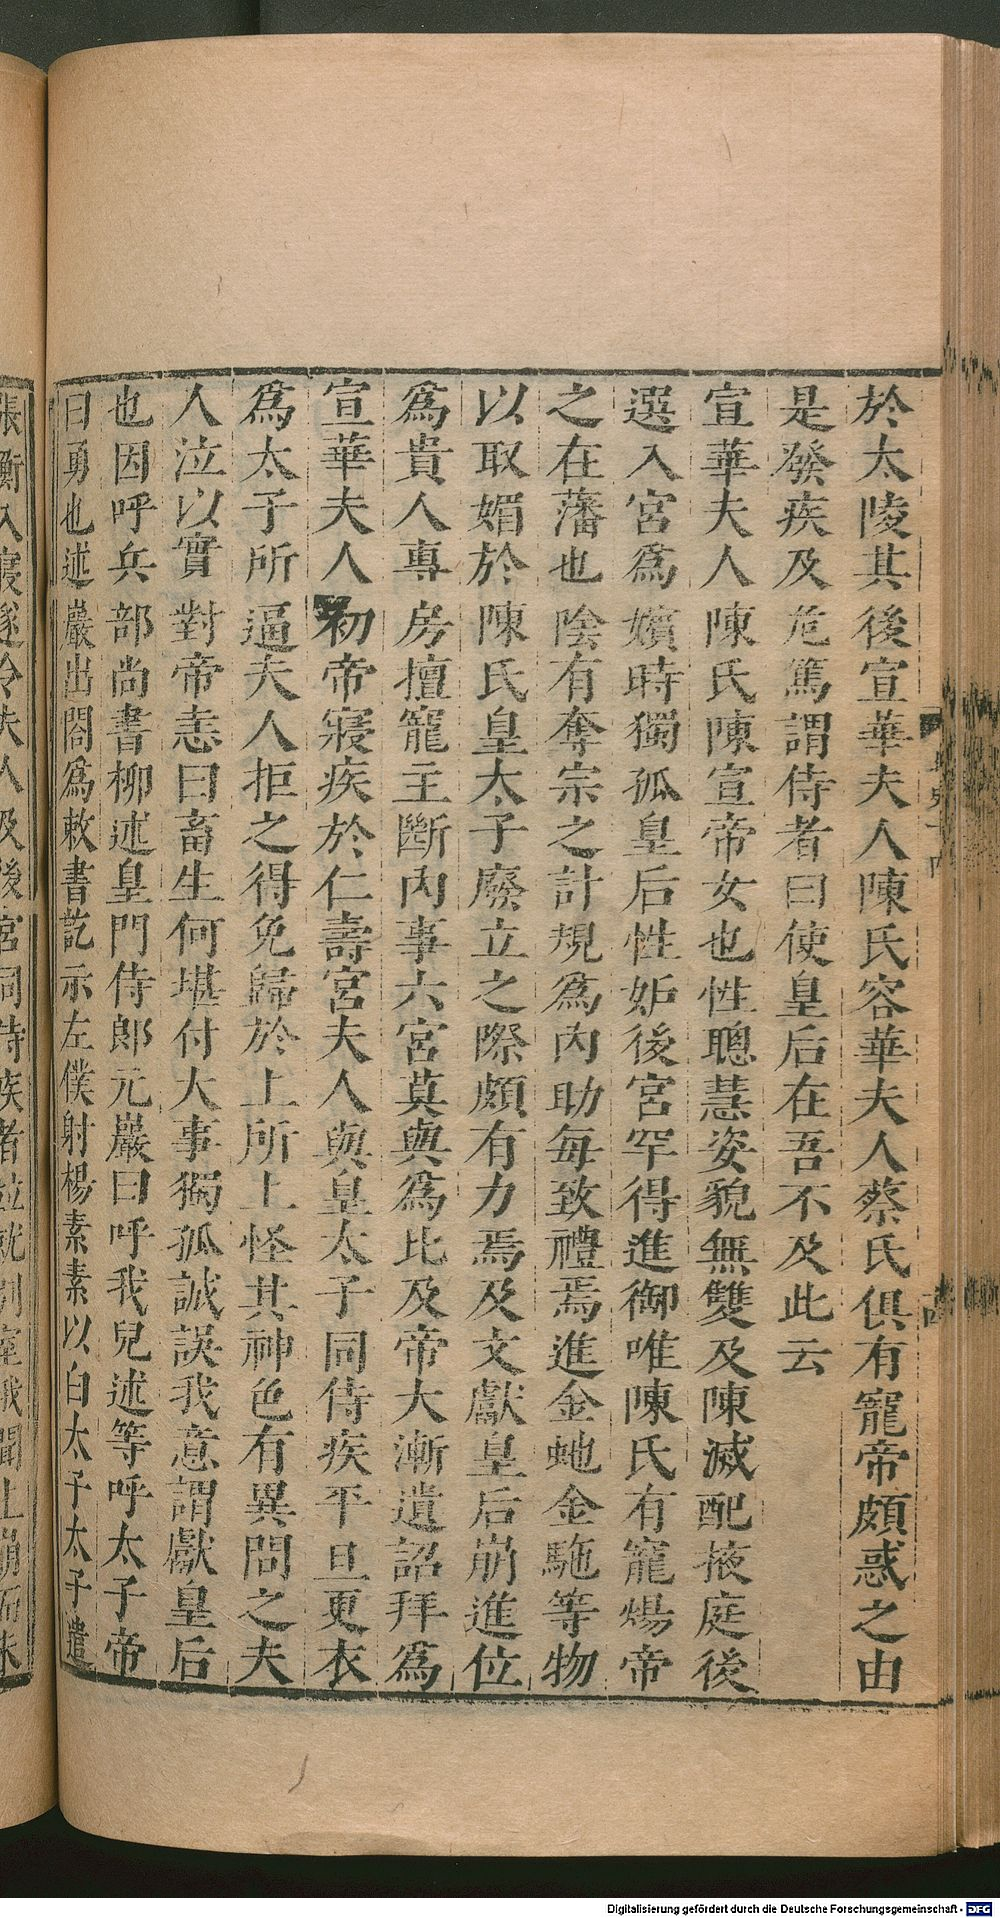 於太陵其後宣華夫人陳氏容華夫人蔡氏俱有寵帝頗惑之由
是發疾及危篤謂侍者曰使皇后在吾不及此云
宣華夫人陳氏陳宣帝女也性聰慧姿貌無雙及陳滅配掖庭後
選入宮爲嬪時獨孤皇后性妒後宮罕得進御唯陳氏有寵煬帝
之在藩也陰有奪宗之計規爲內助每致禮焉進金虵金駞等物
以取媚於陳氏皇太子廢立之際頗有力焉及文獻皇后崩進位
爲貴人專房擅寵主斷內事六宮莫與爲比及帝大漸遺詔拜爲
宣華夫人初帝寢疾於仁壽宮夫人與皇太子同侍疾平旦更衣
爲太子所逼夫人拒之得免歸於上所上怪其神色有異問之夫
人泣以實對帝恚曰畜生何堪付大事獨孤誠誤我意謂獻皇后
也因呼兵部尚書柳述皇門侍郎元巖曰呼我兒述等呼太子帝
曰勇也述巖出閤爲敕書訖示左僕射楊素素以白太子太子遣
張衡入寢遂令夫人及後宮同侍疾者竝就別室俄聞上崩而未
Digitalisierung gefördert durch die Deutsche Forschungsgemeinschaft - DFG